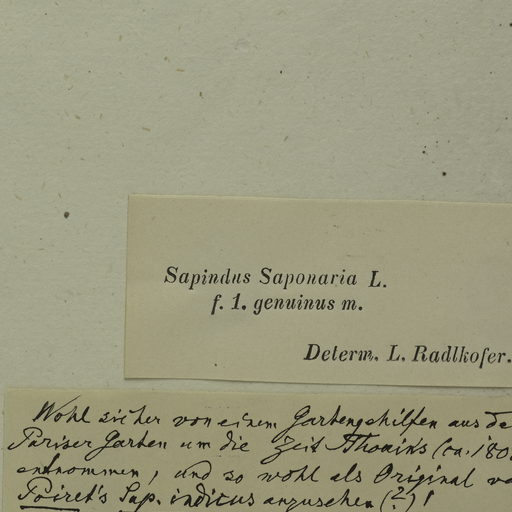 Sapindus Saponaria L.
f. 1. genuinus m.
Determ. L. Radlkofer.
Wohl sicher von einem Gartengehilfen aus de
Pariser Garten um die Zeit Thouin's (ca. 180
entnommen, und so wohl als Original vo
Poiret's Sap. indicus anzusehen (?)!